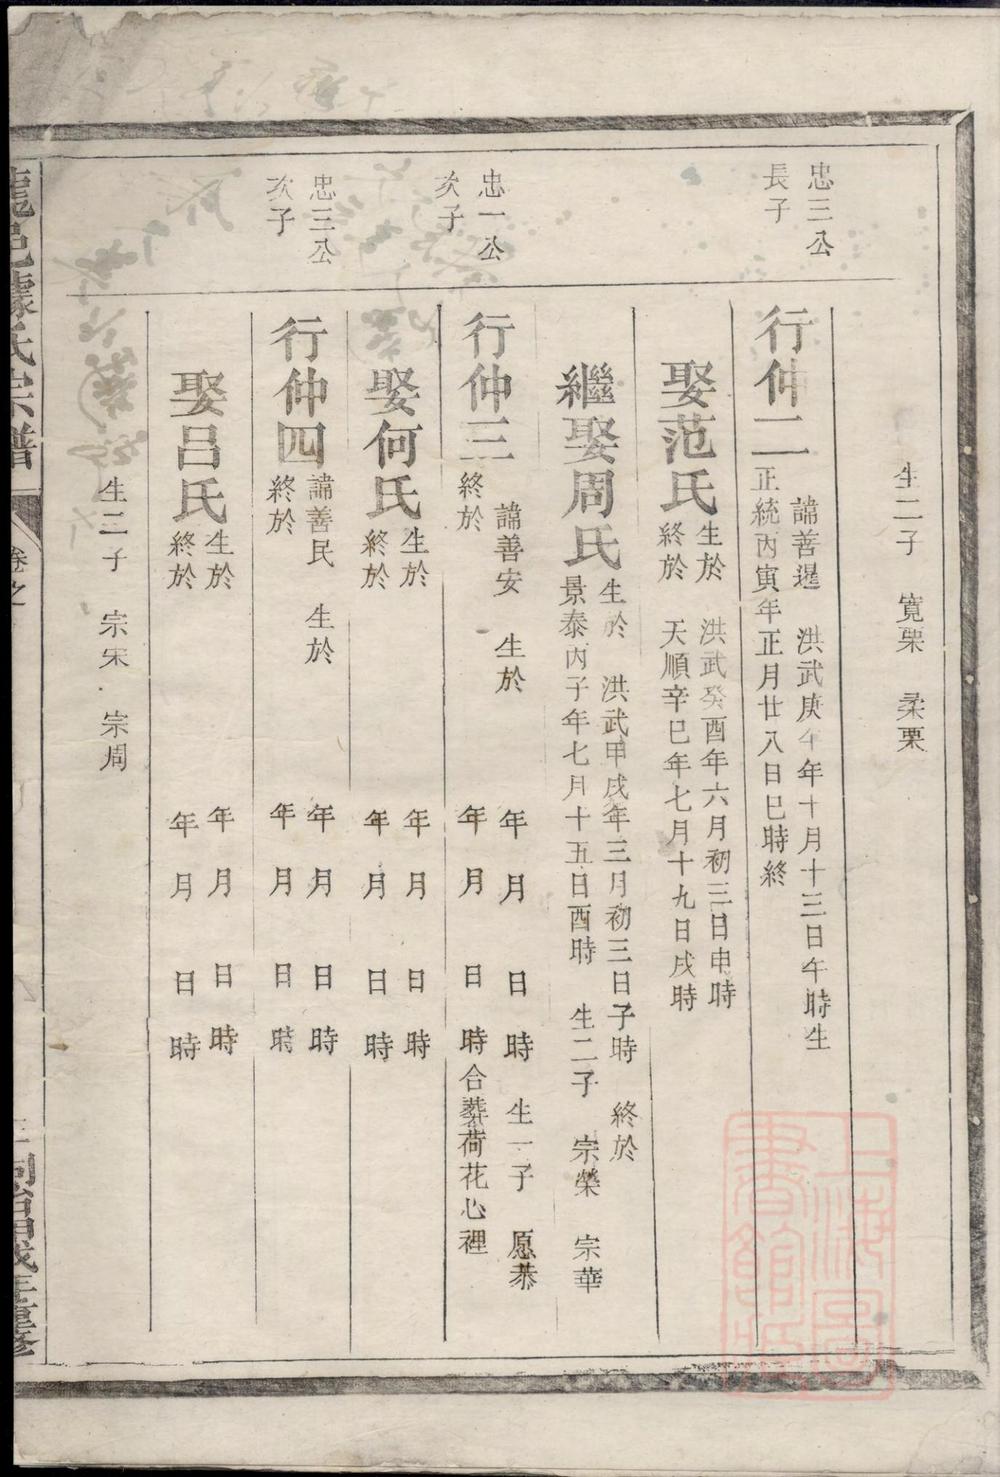 生二子 寬栗 柔栗
忠三公
長子
行仲二
諱善暹 洪武庚午年十月十三日午時生
正統丙寅年正月廿八日巳時終
娶范氏
生於 洪武癸酉年六月初三日申時
終於 天順辛巳年七月十九日戌時
繼娶周氏
生於 洪武甲戌年三月初三日子時 終於
景泰丙子年七月十五日酉時 生二子 宗榮 宗華
忠一公
次子
行仲三
諱善安 生於 年 月 日 時 生一子 愿恭
終於 年 月 日 時 合葬荷花心裡
娶何氏
生於 年 月 日 時
終於 年 月 日 時
忠三公
次子
行仲四
諱善民 生於 年 月 日 時
終於 年 月 日 時
娶呂氏
生於 年 月 日 時
終於 年 月 日 時
生二子 宗宋 宗周
氏宗譜 卷之
同治甲戌年重修
上海圖
書館藏